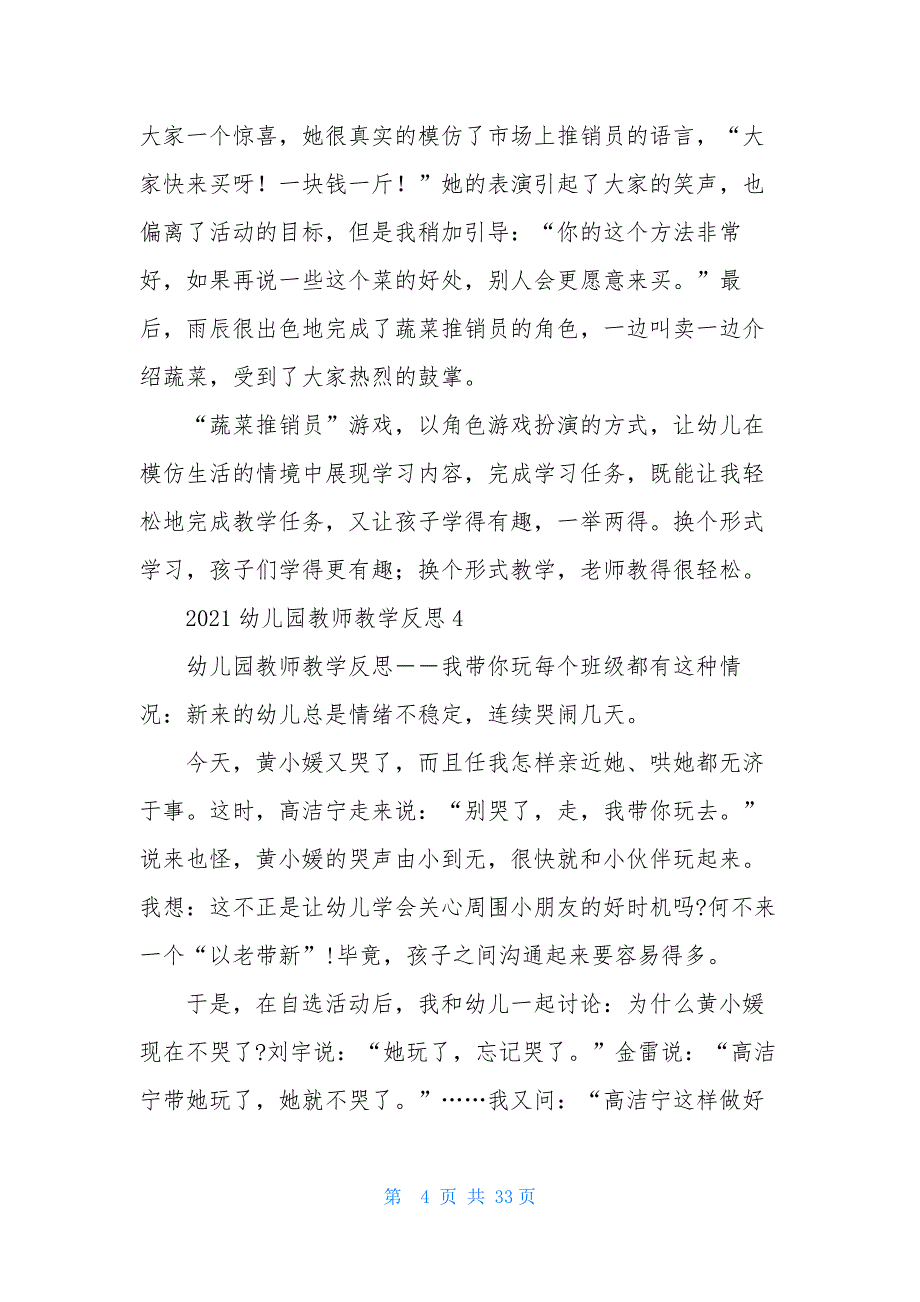 大家一个惊喜，她很真实的模仿了市场上推销员的语言，“大
家快来买呀！一块钱一斤！”她的表演引起了大家的笑声，也
偏离了活动的目标，但是我稍加引导：“你的这个方法非常
好，如果再说一些这个菜的好处，别人会更愿意来买。”最
后，雨辰很出色地完成了蔬菜推销员的角色，一边叫卖一边介
绍蔬菜，受到了大家热烈的鼓掌。
“蔬菜推销员”游戏，以角色游戏扮演的方式，让幼儿在
模仿生活的情境中展现学习内容，完成学习任务，既能让我轻
松地完成教学任务，又让孩子学得有趣，一举两得。换个形式
学习，孩子们学得更有趣；换个形式教学，老师教得很轻松。
2021 幼儿园教师教学反思 4
幼儿园教师教学反思－－我带你玩每个班级都有这种情
况：新来的幼儿总是情绪不稳定，连续哭闹几天。
今天，黄小媛又哭了，而且任我怎样亲近她、哄她都无济
于事。这时，高洁宁走来说：“别哭了，走，我带你玩去。”
说来也怪，黄小媛的哭声由小到无，很快就和小伙伴玩起来。
我想：这不正是让幼儿学会关心周围小朋友的好时机吗?何不来
一个“以老带新”!毕竟，孩子之间沟通起来要容易得多。
于是，在自选活动后，我和幼儿一起讨论：为什么黄小媛
现在不哭了?刘宇说：“她玩了，忘记哭了。”金雷说：“高洁
宁带她玩了，她就不哭了。”……我又问：“高洁宁这样做好
第 4 页 共 33 页